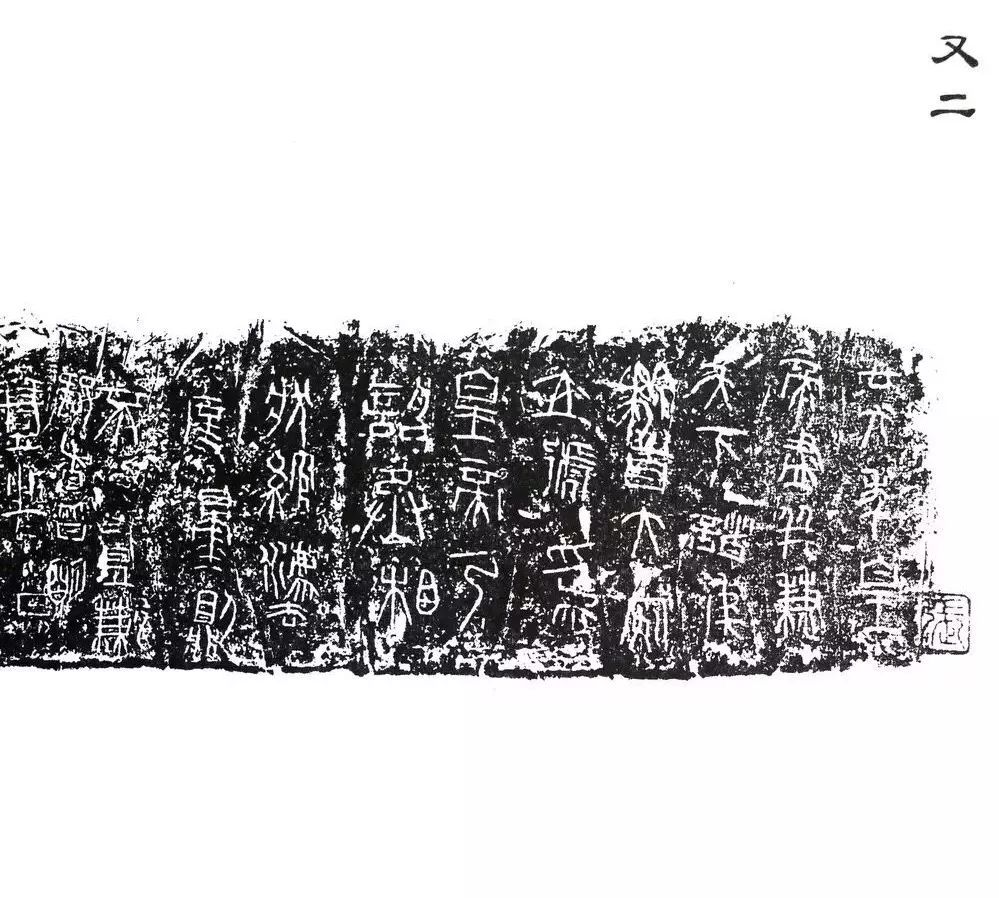 又二
廿六年皇
帝盡并兼
天下諸侯
黔首大安
立號為
皇帝乃
詔丞相
狀綰灋
度量則
不壹歉
疑者皆明
壹之